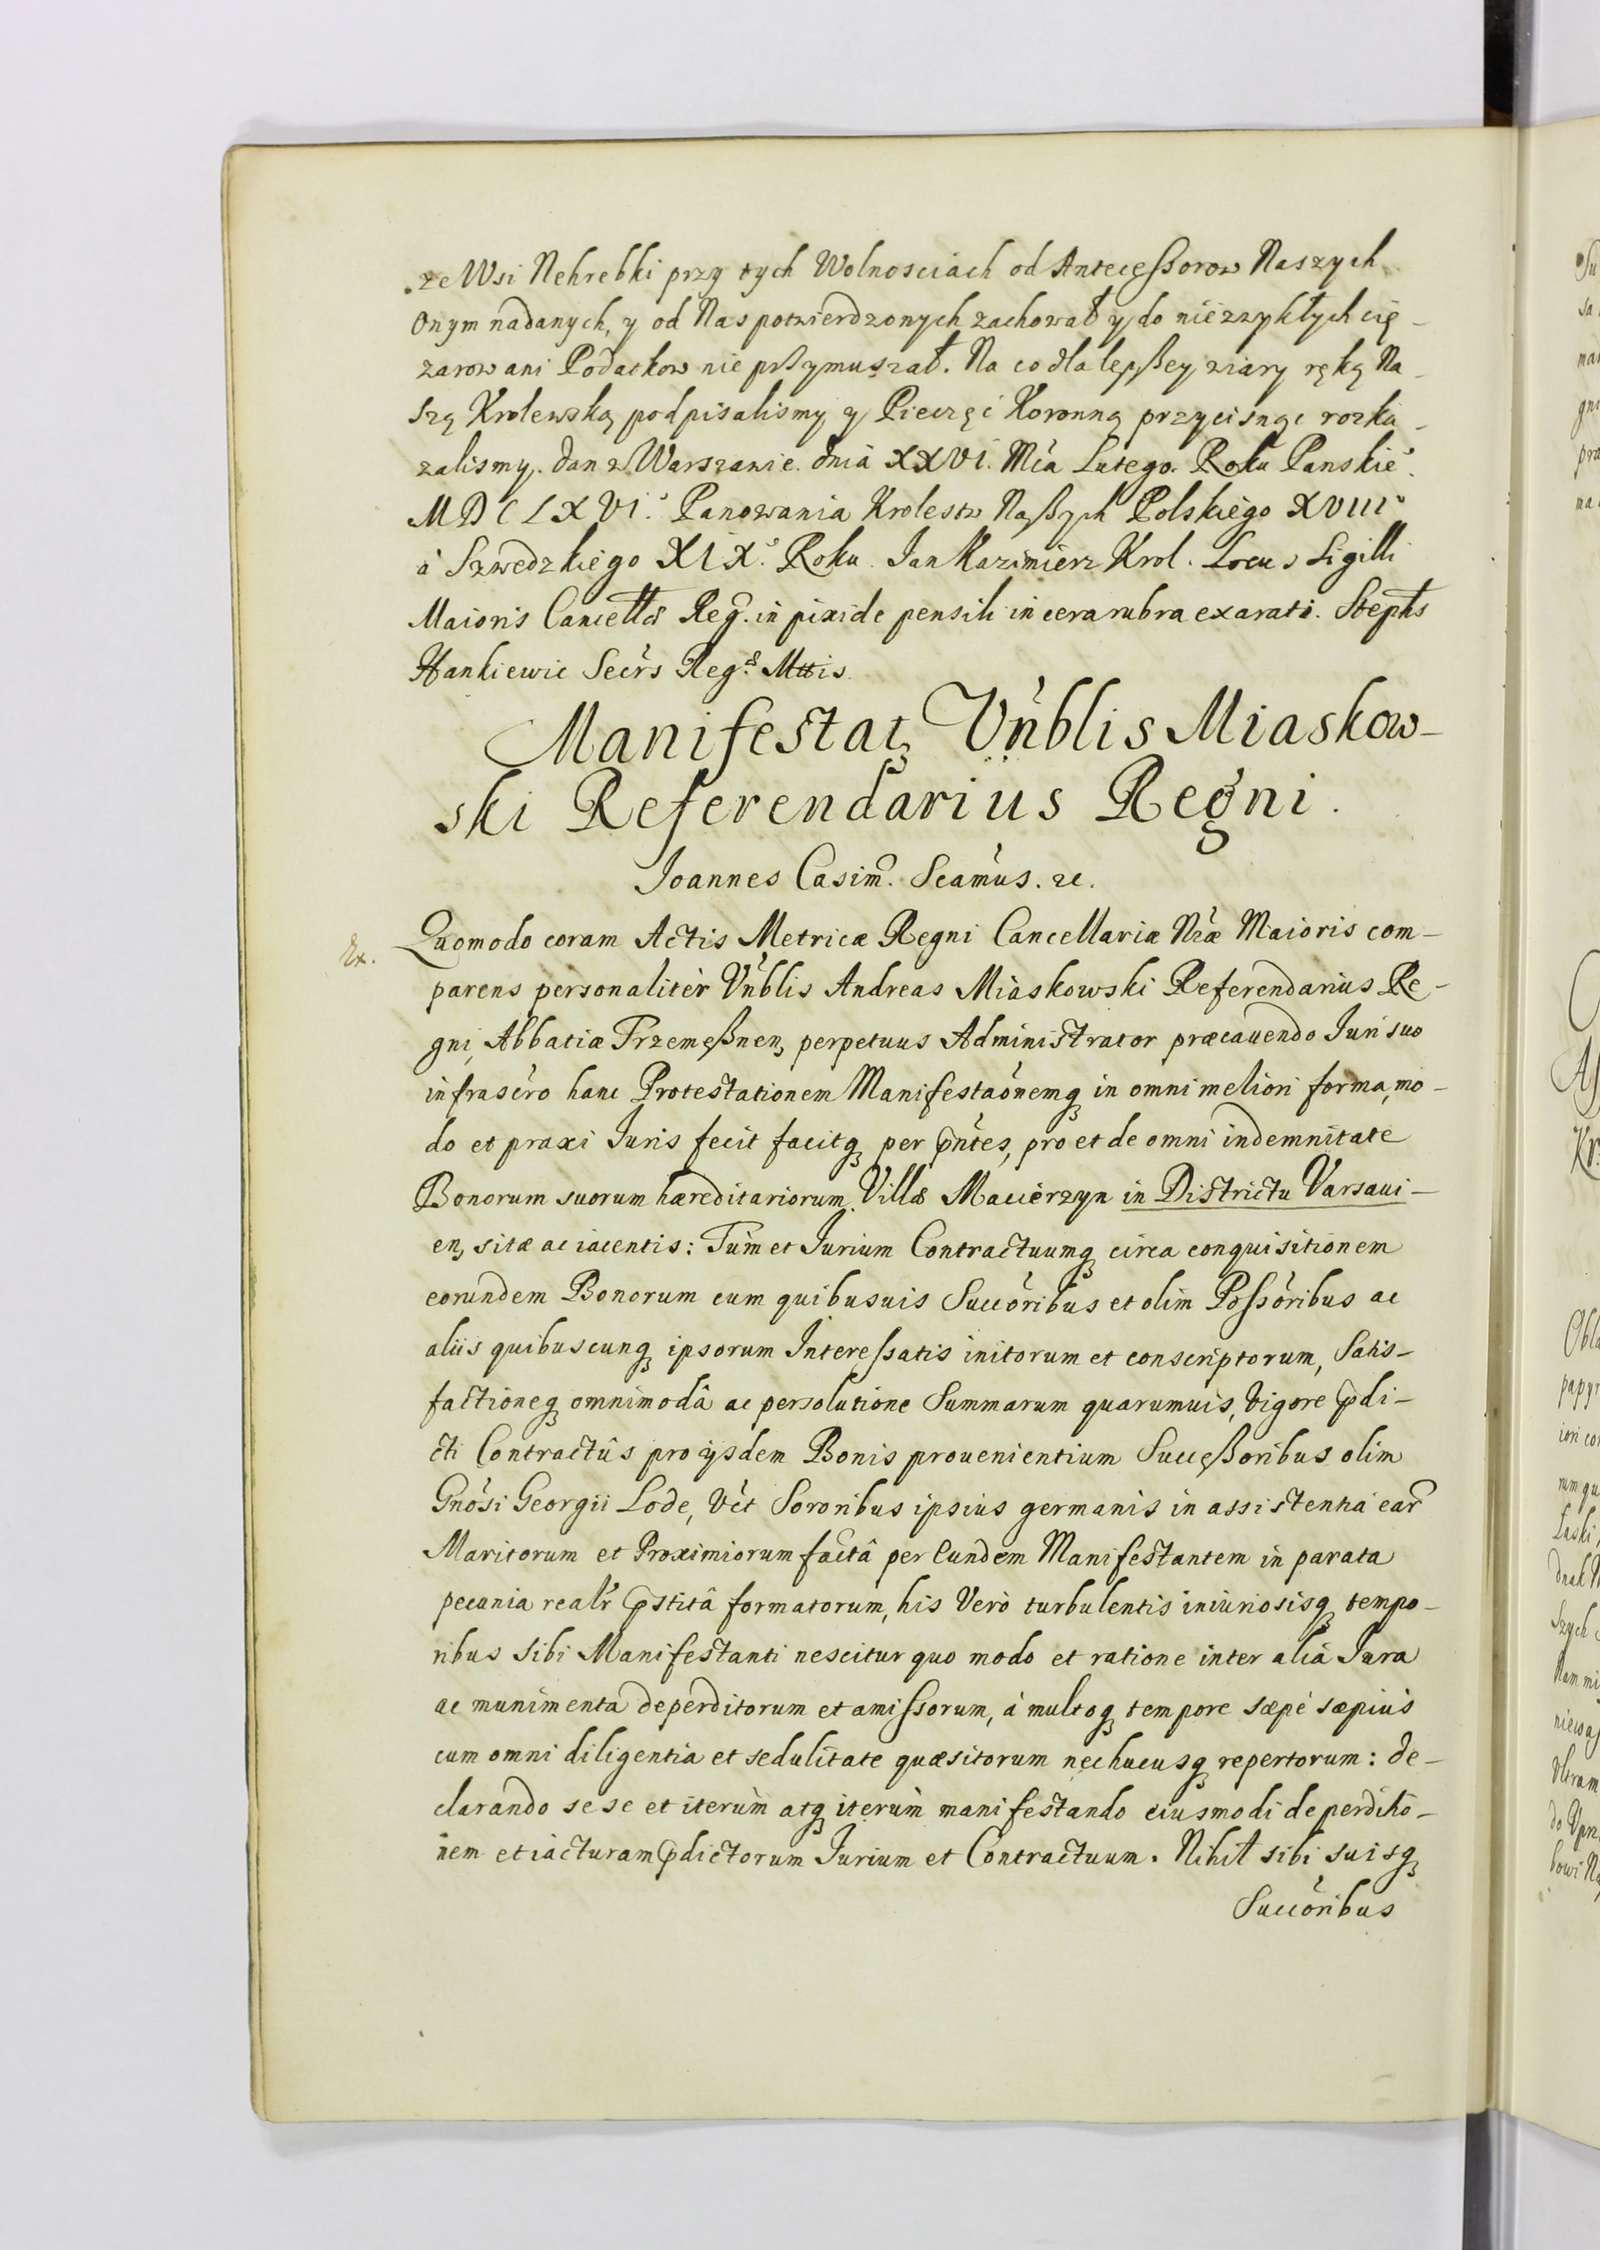 ze Wsi Nehrebki przy tych Wolnosciach od Antecęßorow Naszych
Onym nadanych, y od Nas potwierdzonych zachował y do niezwykłych cię-
zarow ani Podatkow nie prßymuszał. Na co dla lepßey wiary ręką Na-
szą Krolewską podpisalismy y Pieczęć Koronną przycisnąc rozka-
zalismy. Dan w Warszawie dnia XXVI. Mca Lutego. Roku Panskieº.
MDCLXVIº. Panowania Krolestw Naßych Polskiego XVIIIº
a Szwedzkiego XIXº. Roku. Jan Kazimierz Krol. Locus Sigilli
Maioris Cancellæ Reg. in pixide pensili in cera rubra exarati. Stephs
Hankiewic Secrs Regæ Mttis
Manifestatꝫ Vnblis Miaskow-
ski Referendarius Regni.
Joannes Casim. Scamus. ꝛc.
Ex.
Quomodo coram Actis Metricæ Regni Cancellariæ Nræ Maioris com-
parens personaliter Vnblis Andreas Miaskowski Referendarius Re-
gni, Abbatiæ Trzemeßnenꝫ perpetuus Administrator præcauendo Juri suo
infrascro hanc Protestationem Manifestaonemqꝫ in omni meliori forma, mo-
do et praxi Juris fecit facitqꝫ per pñtes, pro et de omni indemnitate
Bonorum suorum hæreditariorum Villæ Macierzyn in Districtu Varsaui-
enꝫ sitæ ac iacentis: Tum et Jurium Contractuumqꝫ circa conquisitionem
eorundem Bonorum cum quibusuis Succoribus et olim Poſsoribus ac
aliis quibuscunqꝫ ipsorum Intereſsatis initorum et conscriptorum, Satis-
factioneqꝫ omnimodâ ac persolutione Summarum quarumuis, vigore p̱di-
cti Contractûs pro ijsdem Bonis prouenientium Succeßoribus olim
Gnosi Georgii Lode, vet Sororibus ipsius germanis in assistentia ear
Maritorum et Proximiorum factâ per Eundem Manifestantem in parata
pecunia realr p̱stitâ formatorum, his Vero turbulentis iniuriosisqꝫ tempo-
ribus sibi Manifestanti nescitur quo modo et ratione inter alia Jura
ac munimenta deperditorum et amiſsorum, à multoqꝫ tempore sæpe sæpius
cum omni diligentia et sedulitate quæsitorum nec hucusqꝫ repertorum: de-
clarando sese et iterum atqꝫ iterum manifestando eiusmodi deperditio-
nem et iacturam p̱dictorum Jurium et Contractuum. Nihil sibi suisqꝫ
Succoribus